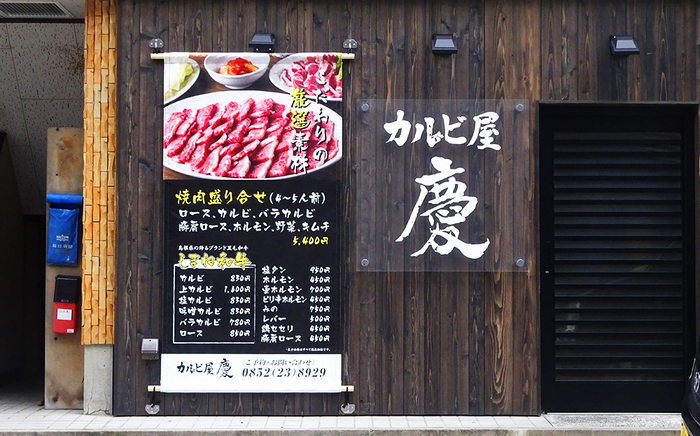 こだわりの
厳選素材
焼肉盛り合せ(4〜5人前)
ロース、カルビ、バラカルビ
豚肩ロース、ホルモン、野菜、キムチ
5,400円
島根県の誇るブランド黒毛和牛
しまね和牛
カルビ 830円
上カルビ 1,600円
塩カルビ 830円
味噌カルビ 830円
バラカルビ 780円
ロース 850円
塩タン 950円
ホルモン 650円
壺ホルモン 700円
ピリ辛ホルモン 650円
みの 750円
レバー 500円
鶏セセリ 450円
豚肩ロース 450円
カルビ屋 慶
(ご予約・お問い合わせ)
0852(23)8929
カルビ屋
慶